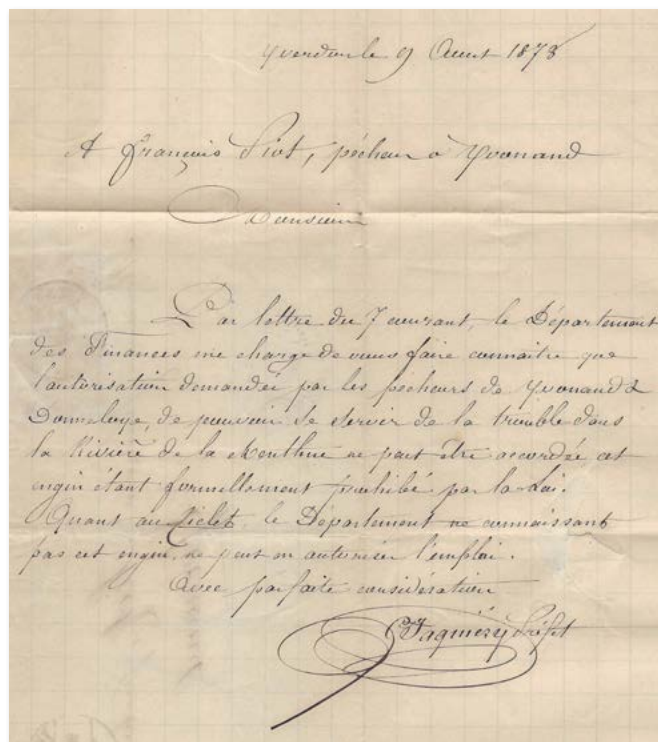 Yverdon le 9 Aout 1873
A François Piot, pécheur à Yvonand
Monsieur
Par lettre du 7 courant, le Département
des Finances me charge de vous faire connaitre que
l'autorisation demandée par les pécheurs de Yvonand &
Donneloye, de pouvoir se servir de la trouble dans
la Rivière de la Menthue ne peut être accordée cet
engin étant formellement prohibé par la Loi.
Quant au, le Département ne connaissant
pas cet engin, ne peut en autoriser l'emploi.
Avec parfaite considération
Préfet